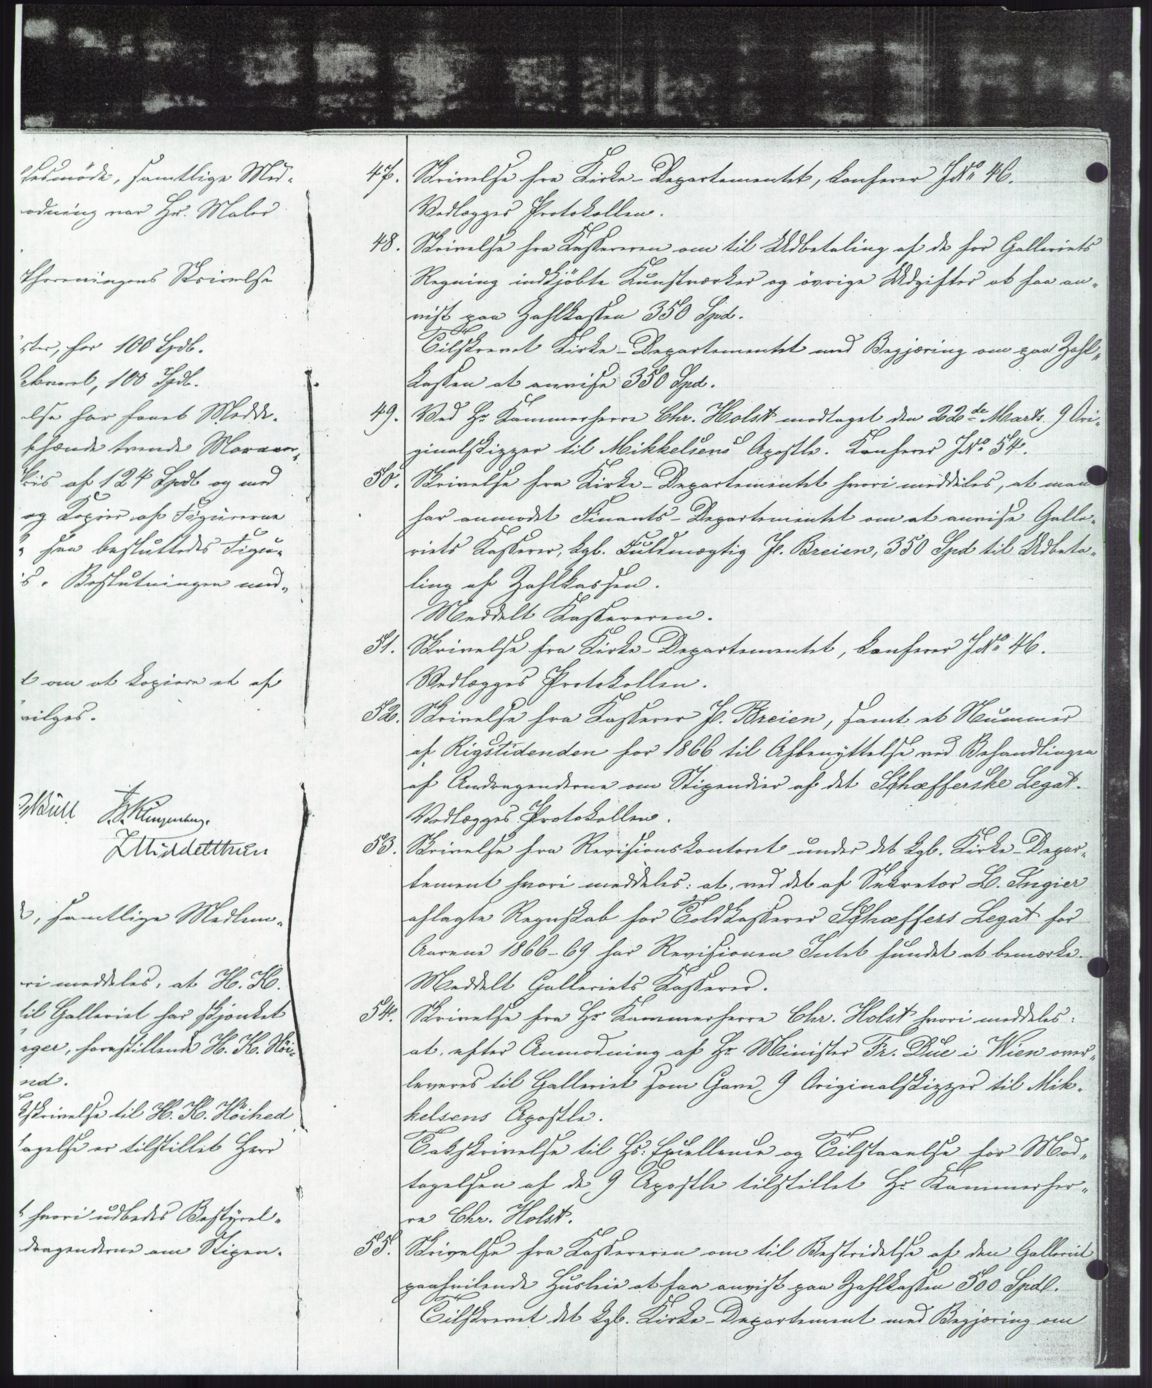 samtlige Med-
odning var Hr. Maler
Skrivelse
for 100 Spdl.
100 Spdl.
else har havt Medde-
af 124 Spdl og med
og Kopier af Figurerne
saa besluttedes Figu-
is. Beslutningen med-
t om at kopiere et af
vilges.
Middelthun
samtlige Medlem-
ri meddeles, at H. H.
til Galleriet har skjænket
forestillende H. H. Höi-
skrivelse til H. H. Höihed
agelse er tilstillet Herr
hvori udbedes Bestyrel-
dragenderne om Stipen-
47. Skrivelse fra Kirke-Departementet, konferer JNo. 46.
Vedlægges Protokollen.
48. Skrivelse fra Kassereren om til Udbetaling af de for Galleriets
Regning indkjöbte Kunstværker og övrige Udgifter at faa an-
vist paa Zahlkassen 350 Spd.
Tilskrevet Kirke-Departementet med Begjæring om paa Zahl-
kassen at anvise 350 Spd.
49. Ved Hr. Kammerherre Chr. Holst modtaget den 22de Marts 9 Ori-
ginalskizzer til Mikkelsens Apostle. Konferer JNo. 54.
50. Skrivelse fra Kirke-Departementet hvori meddeles, at man
har anmodet Finants-Departementet om at anvise Galle-
riets Kasserer, kgl. Fuldmægtig P. Breien, 350 Spd til Udbeta-
ling af Zahlkassen.
Meddelt Kassereren.
51. Skrivelse fra Kirke-Departementet, konferer JNo. 46.
Vedlægges Protokollen.
52. Skrivelse fra Kasserer P. Breien, samt et Nummer
af Rigstidenden for 1866 til Afbenyttelse ved Behandlingen
af Andragenderne om Stipendier af det Schæfferske Legat.
Vedlægges Protokollen.
53. Skrivelse fra Revisionskontoret under det kgl. Kirke-Depar-
tement hvori meddeles: at, ved det af Sekretær L. Ingier
aflagte Regnskab for Toldkasserer Schæffers Legat for
Aarene 1866-69 har Revisionen Intet fundet at bemærke.
Meddelt Galleriets Kasserer.
54. Skrivelse fra Hr Kammerherre Chr. Holst hvori meddeles:
at, efter Anmodning af Hr Minister Fr. Due i Wien over-
leveres til Galleriet som Gave, 9 Originalskizzer til Mik-
kelsens Apostle.
Takskrivelse til Hs. Excellence og Tilstaaelse for Mod-
tagelsen af de 9 Apostle tilstillet Hr Kammerher-
re Chr. Holst.
55. Skrivelse fra Kassereren om til Bestridelse af den Galleriet
paahvilende Husleie at faa anvist paa Zahlkassen 500 Spdl.
Tilskrevet det kgl. Kirke-Departement med Begjæring om